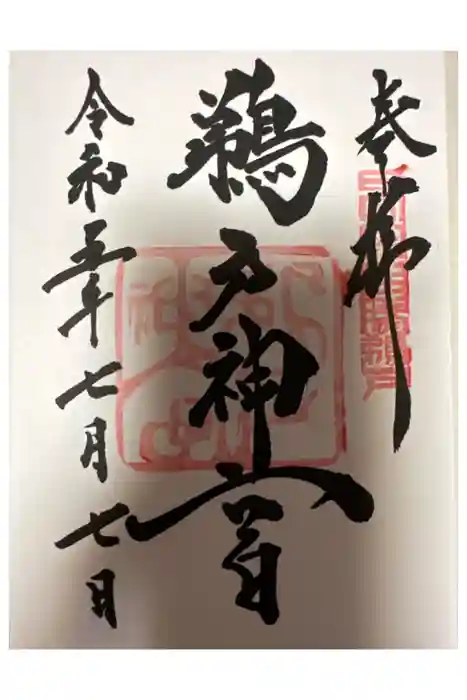 奉拝
鵜戸神宮
令和五年七月七日